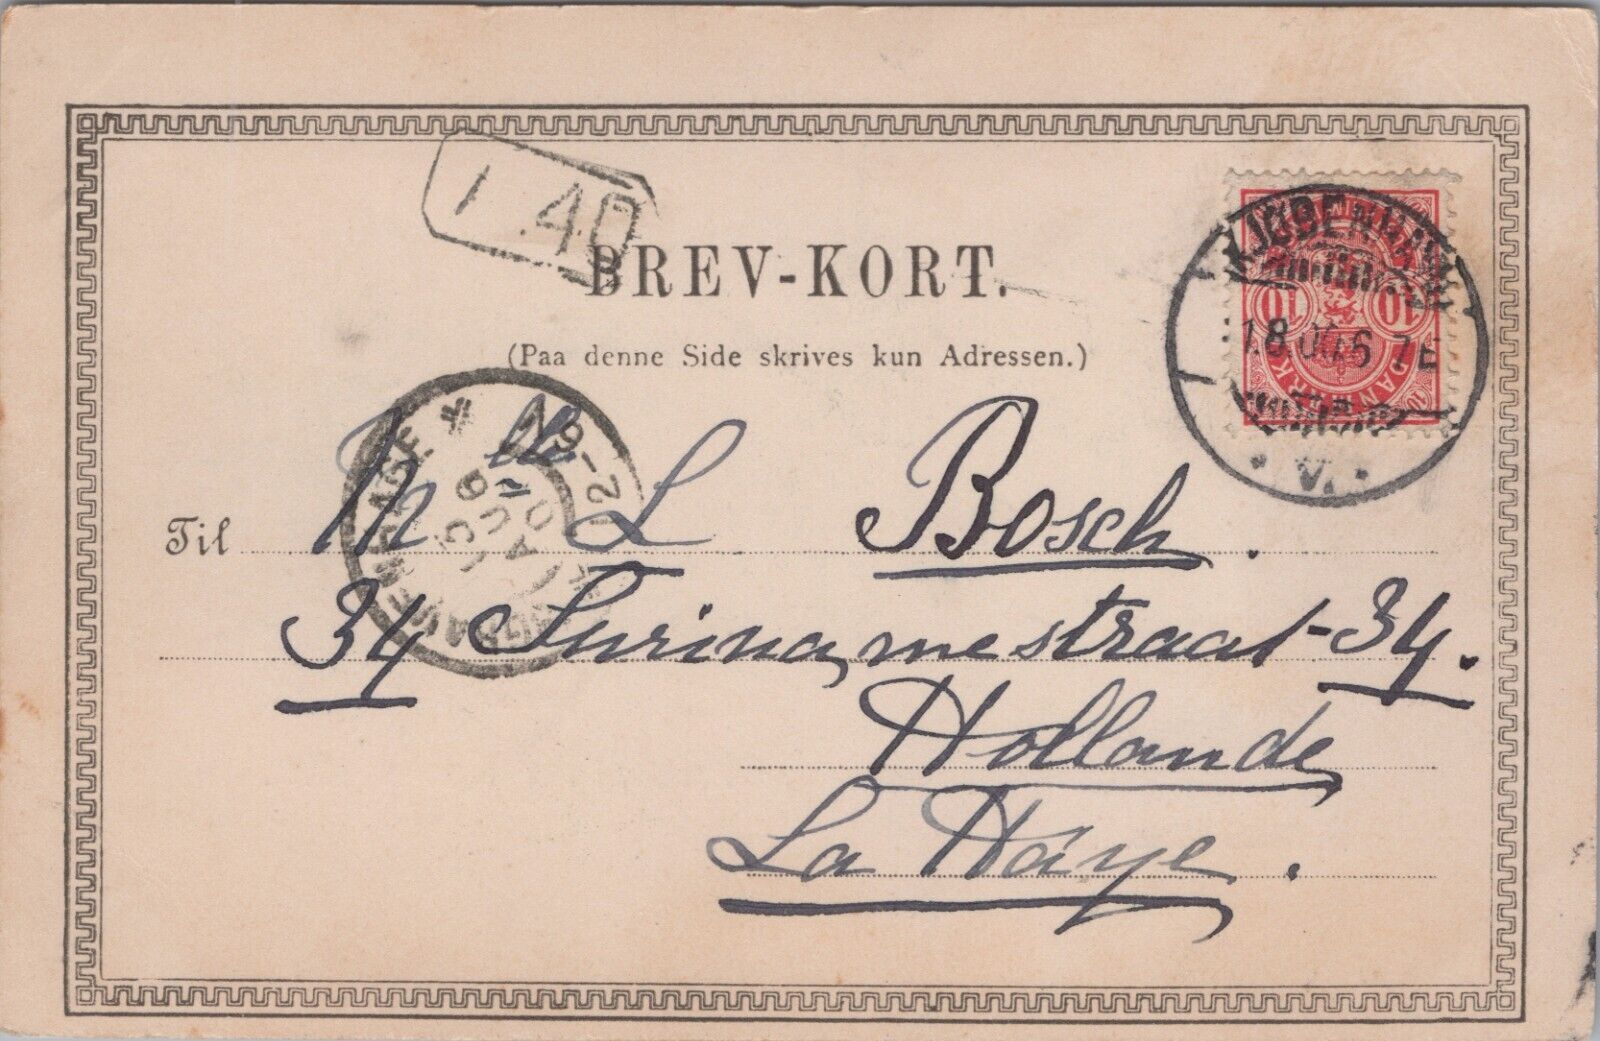 1 40
BREV-KORT.
(Paa denne Side skrives kun Adressen.)
KJØBENHAVN
V.
DANMARK
10 10
Til Mlle L Bosch.
34 Surinamestraat-34.
Hollande
La Haye.
'S GRAVENHAGE